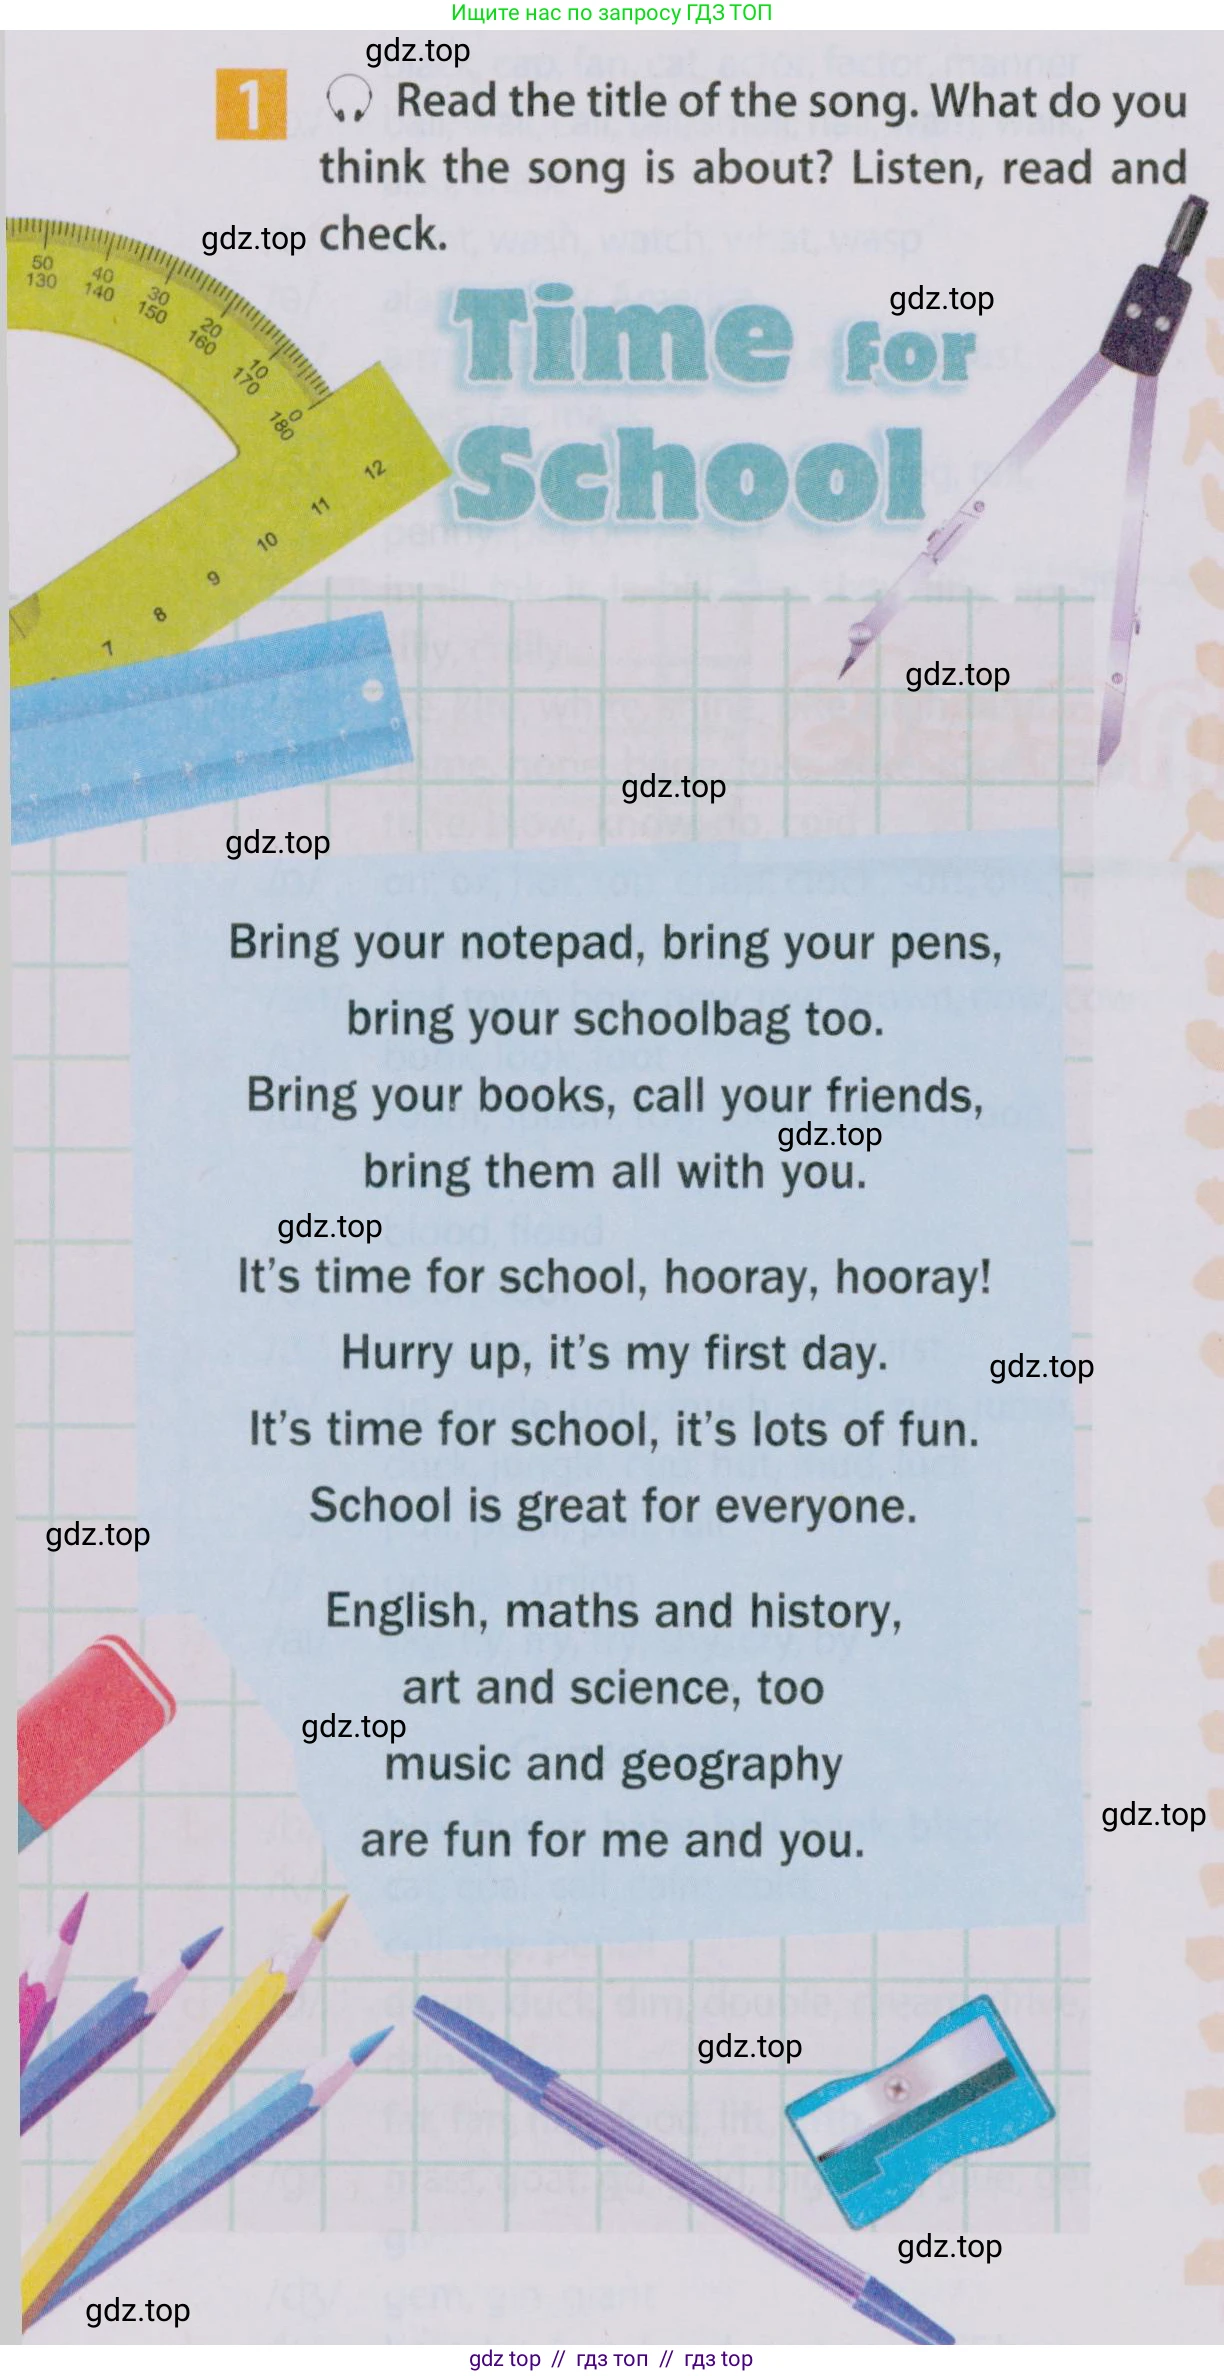 Ищите нас по запросу ГДЗ ТОП
gdz.top
1 Read the title of the song. What do you
think the song is about? Listen, read and
gdz.top check.
Time for
gdz.top
School
50 40 30 20 10 0
130 140 150 160 170 180
12
11
10
9
8
7
gdz.top
gdz.top
gdz.top
Bring your notepad, bring your pens,
bring your schoolbag too.
Bring your books, call your friends,
gdz.top
bring them all with you.
gdz.top
It's time for school, hooray, hooray!
Hurry up, it's my first day.
gdz.top
It's time for school, it's lots of fun.
School is great for everyone.
gdz.top
English, maths and history,
art and science, too
gdz.top
music and geography
gdz.top
are fun for me and you.
gdz.top
gdz.top
gdz.top
gdz top // гдз топ // гдз top